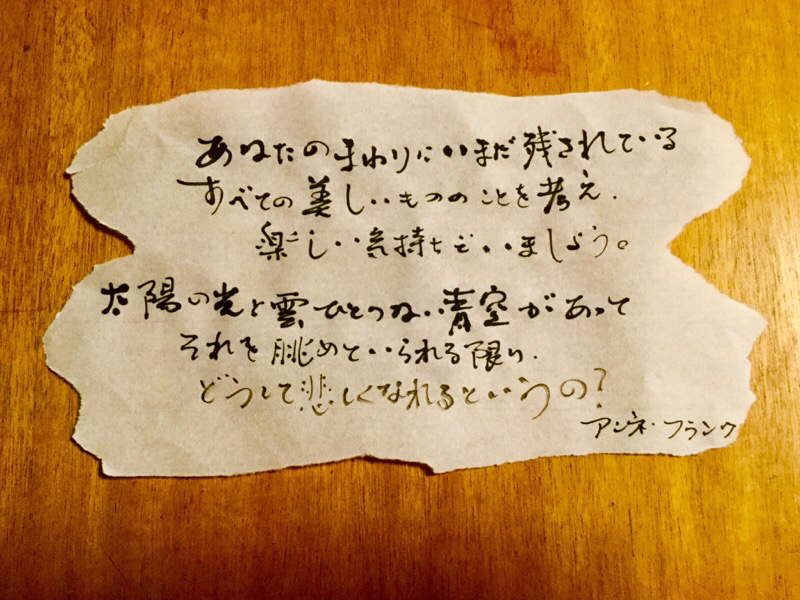 あなたのまわりにいまだ残されている
すべての美しいもののことを考え、
楽しい気持ちでいましょう。
太陽の光と雲ひとつない青空があって
それを眺めていられる限り、
どうして悲しくなれるというの?
アンネ・フランク